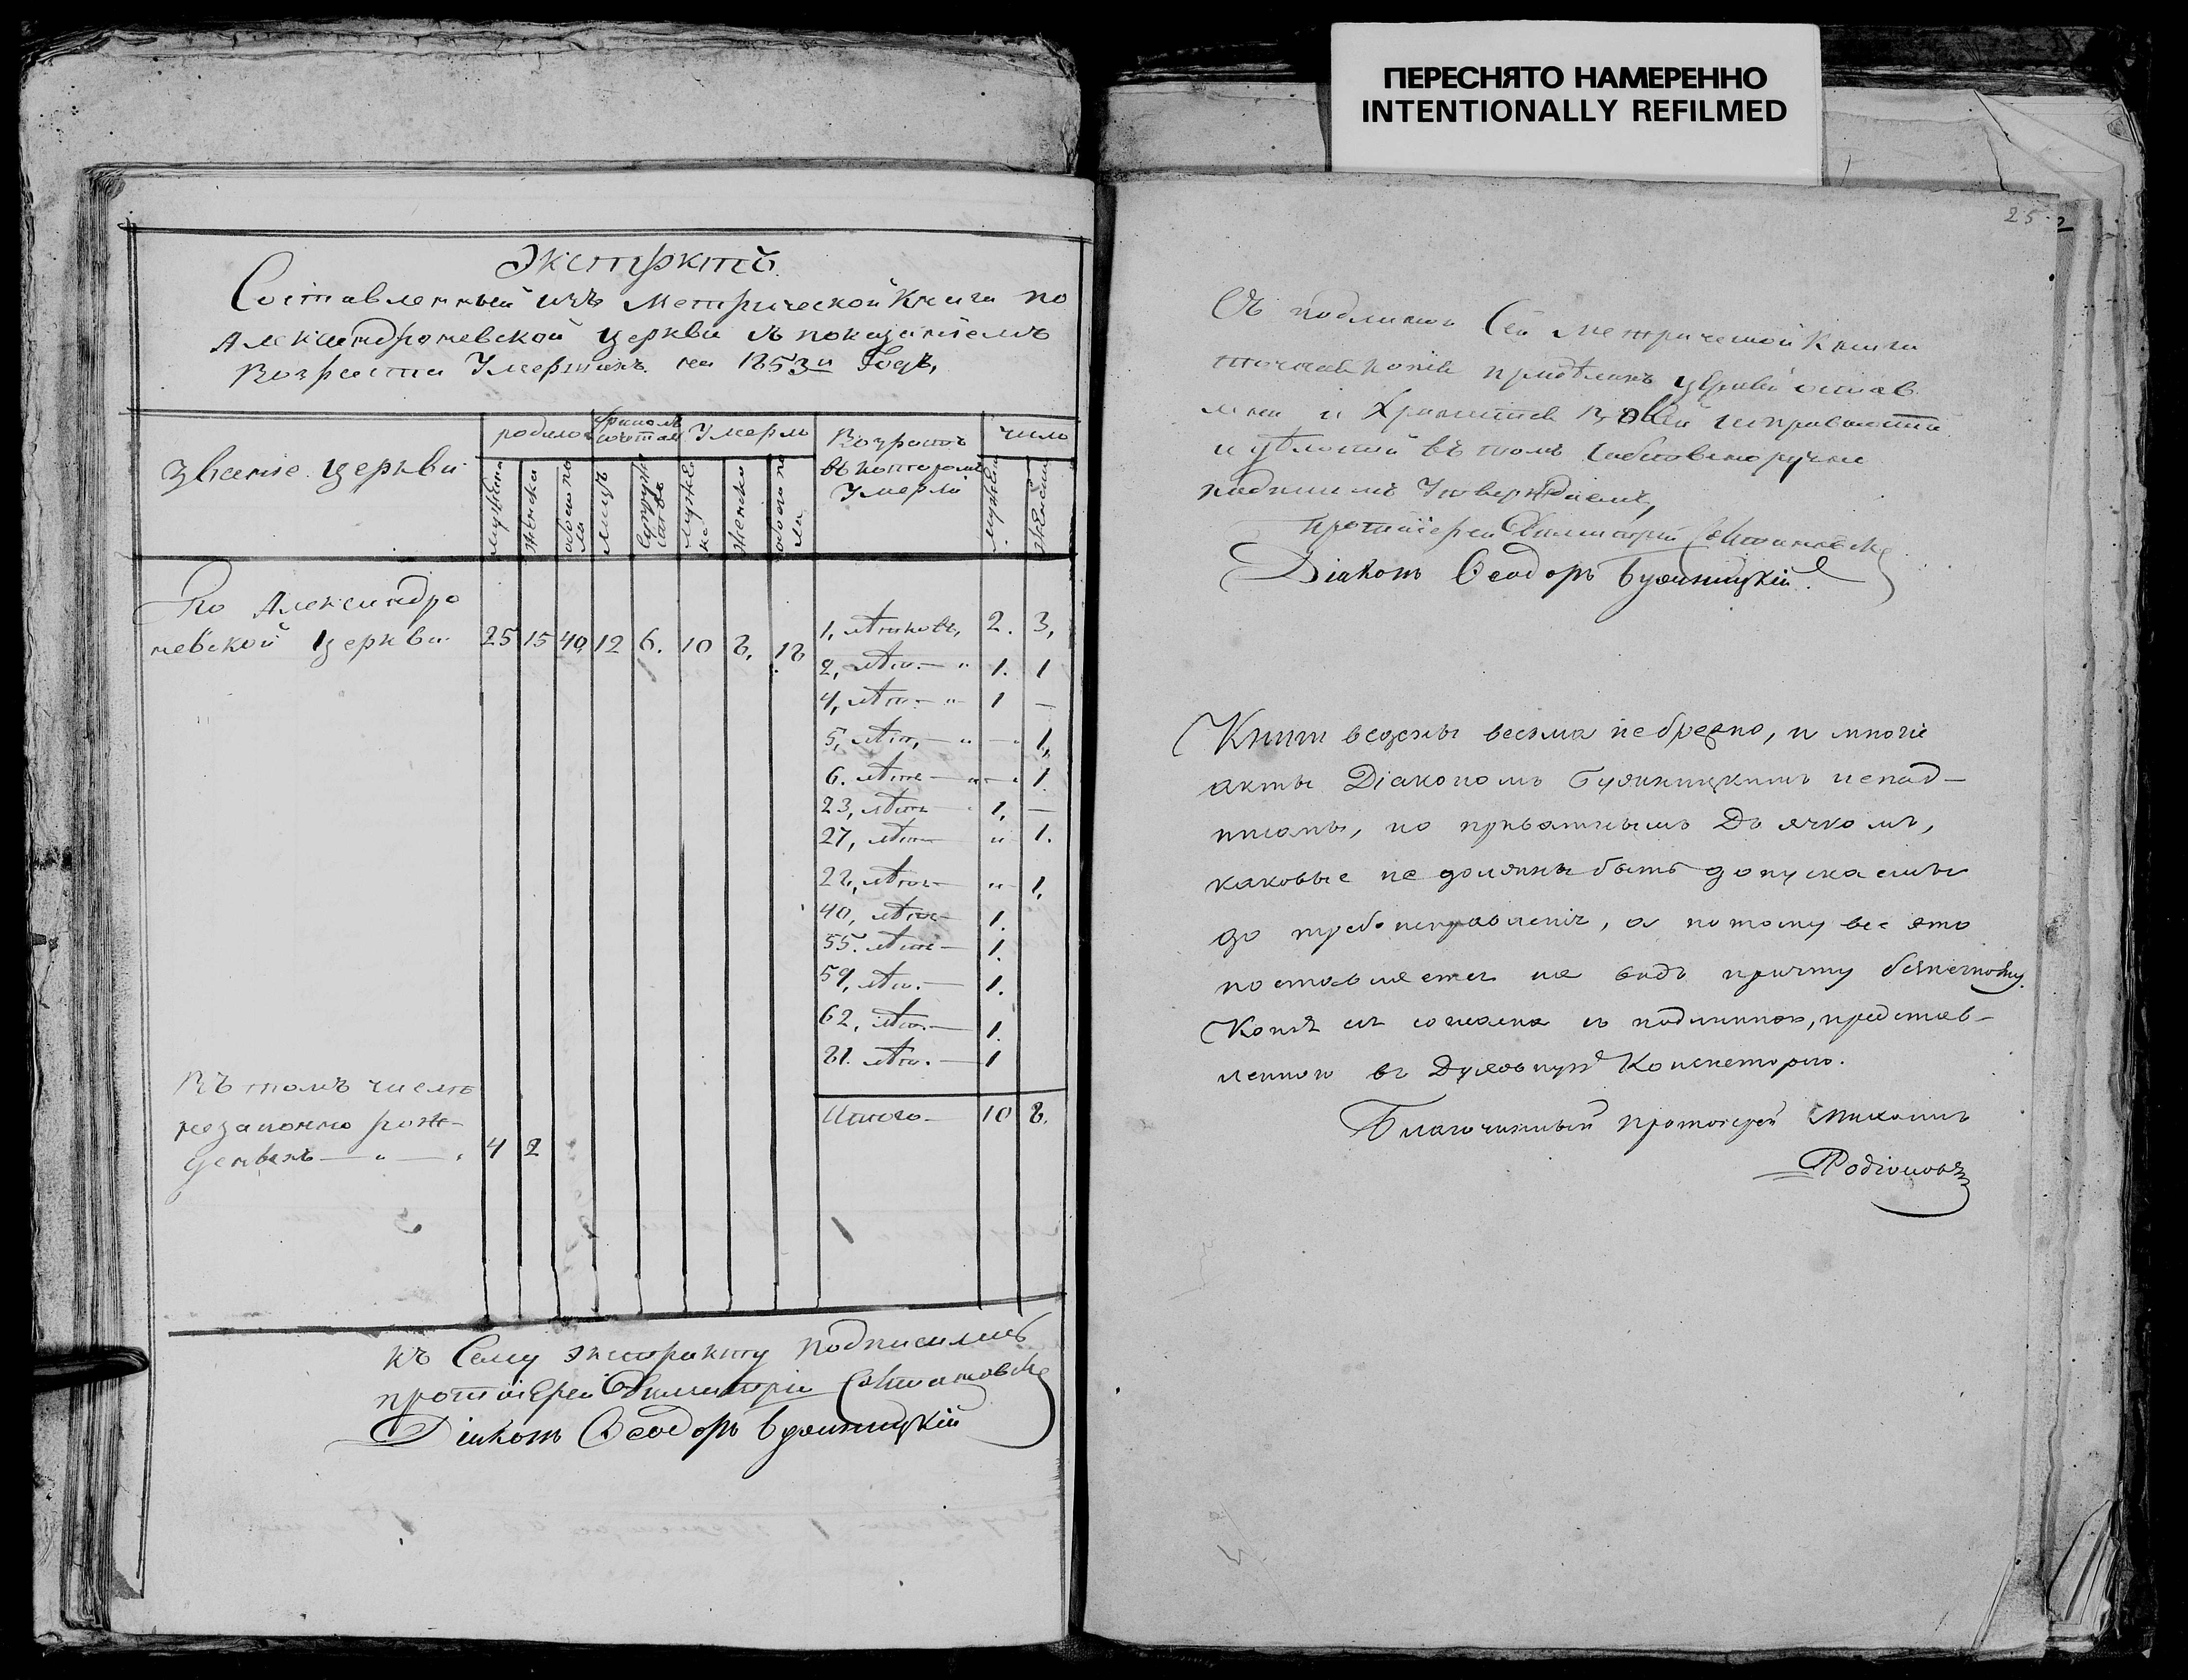 ПЕРЕСНЯТО НАМЕРЕННО
INTENTIONALLY REFILMED
Экстрктъ
Составленный изъ Метрической Книги по
Александроневской церкви съ показаніемъ
Возраста Умершихъ на 1853й Годъ,
званіе церкви
родилось
бракомъ сочетан
Умерло
Возрастъ
въ которомъ
Умерли
число
мужеска
женска
обоего по
ла
лицъ
Супруже
ства
мужес
ка
женска
обоего по
ла
мужеска
женска
По Александро
невской церкви 25 15 40 12 6. 10 8. 18
1, лѣтковъ, 2. 3,
2, лѣт.— " 1. 1
4, лѣт.— " 1 —
5, лѣт,— " — 1,
6. лѣт — " — 1.
23, лѣт — 1. —
27, лѣт— " 1.
28, лѣт— " 1.
40, лѣт— 1.
55. лѣт— 1.
59, лѣт.— 1.
62, лѣт.— 1.
81. лѣт.— 1
Итого— 10 8.
Въ томъ числѣ
незаконно рож-
денныхъ — " — 4 2
къ Сему экстракту подписались
протоіерей Димитрій
Діаконъ Ѳеодоръ Буяницкій
25
Съ подлинной Сей Метрической Книги
точная копія при церкви остав
лена и Хранится въ исправности
и цѣлости въ томъ собственоручно
подписомъ Утверждаемъ,
протоіерей Димитрій
Діаконъ Ѳеодоръ Буяницкій.
Книги ведены весьма небрежно, и многіе
акты Діакономъ Буяницкимъ непод-
писаны, но приватнымъ Дьячкомъ,
каковые не должны быть допускаемы
до требоисправленія, а потому все это
поставляется на видъ причту безпечному.
Копія сія согласна съ подлинною, представ-
ленною въ Духовную Консисторію.
Благочинный протоіерей Михаилъ
Родіоновъ